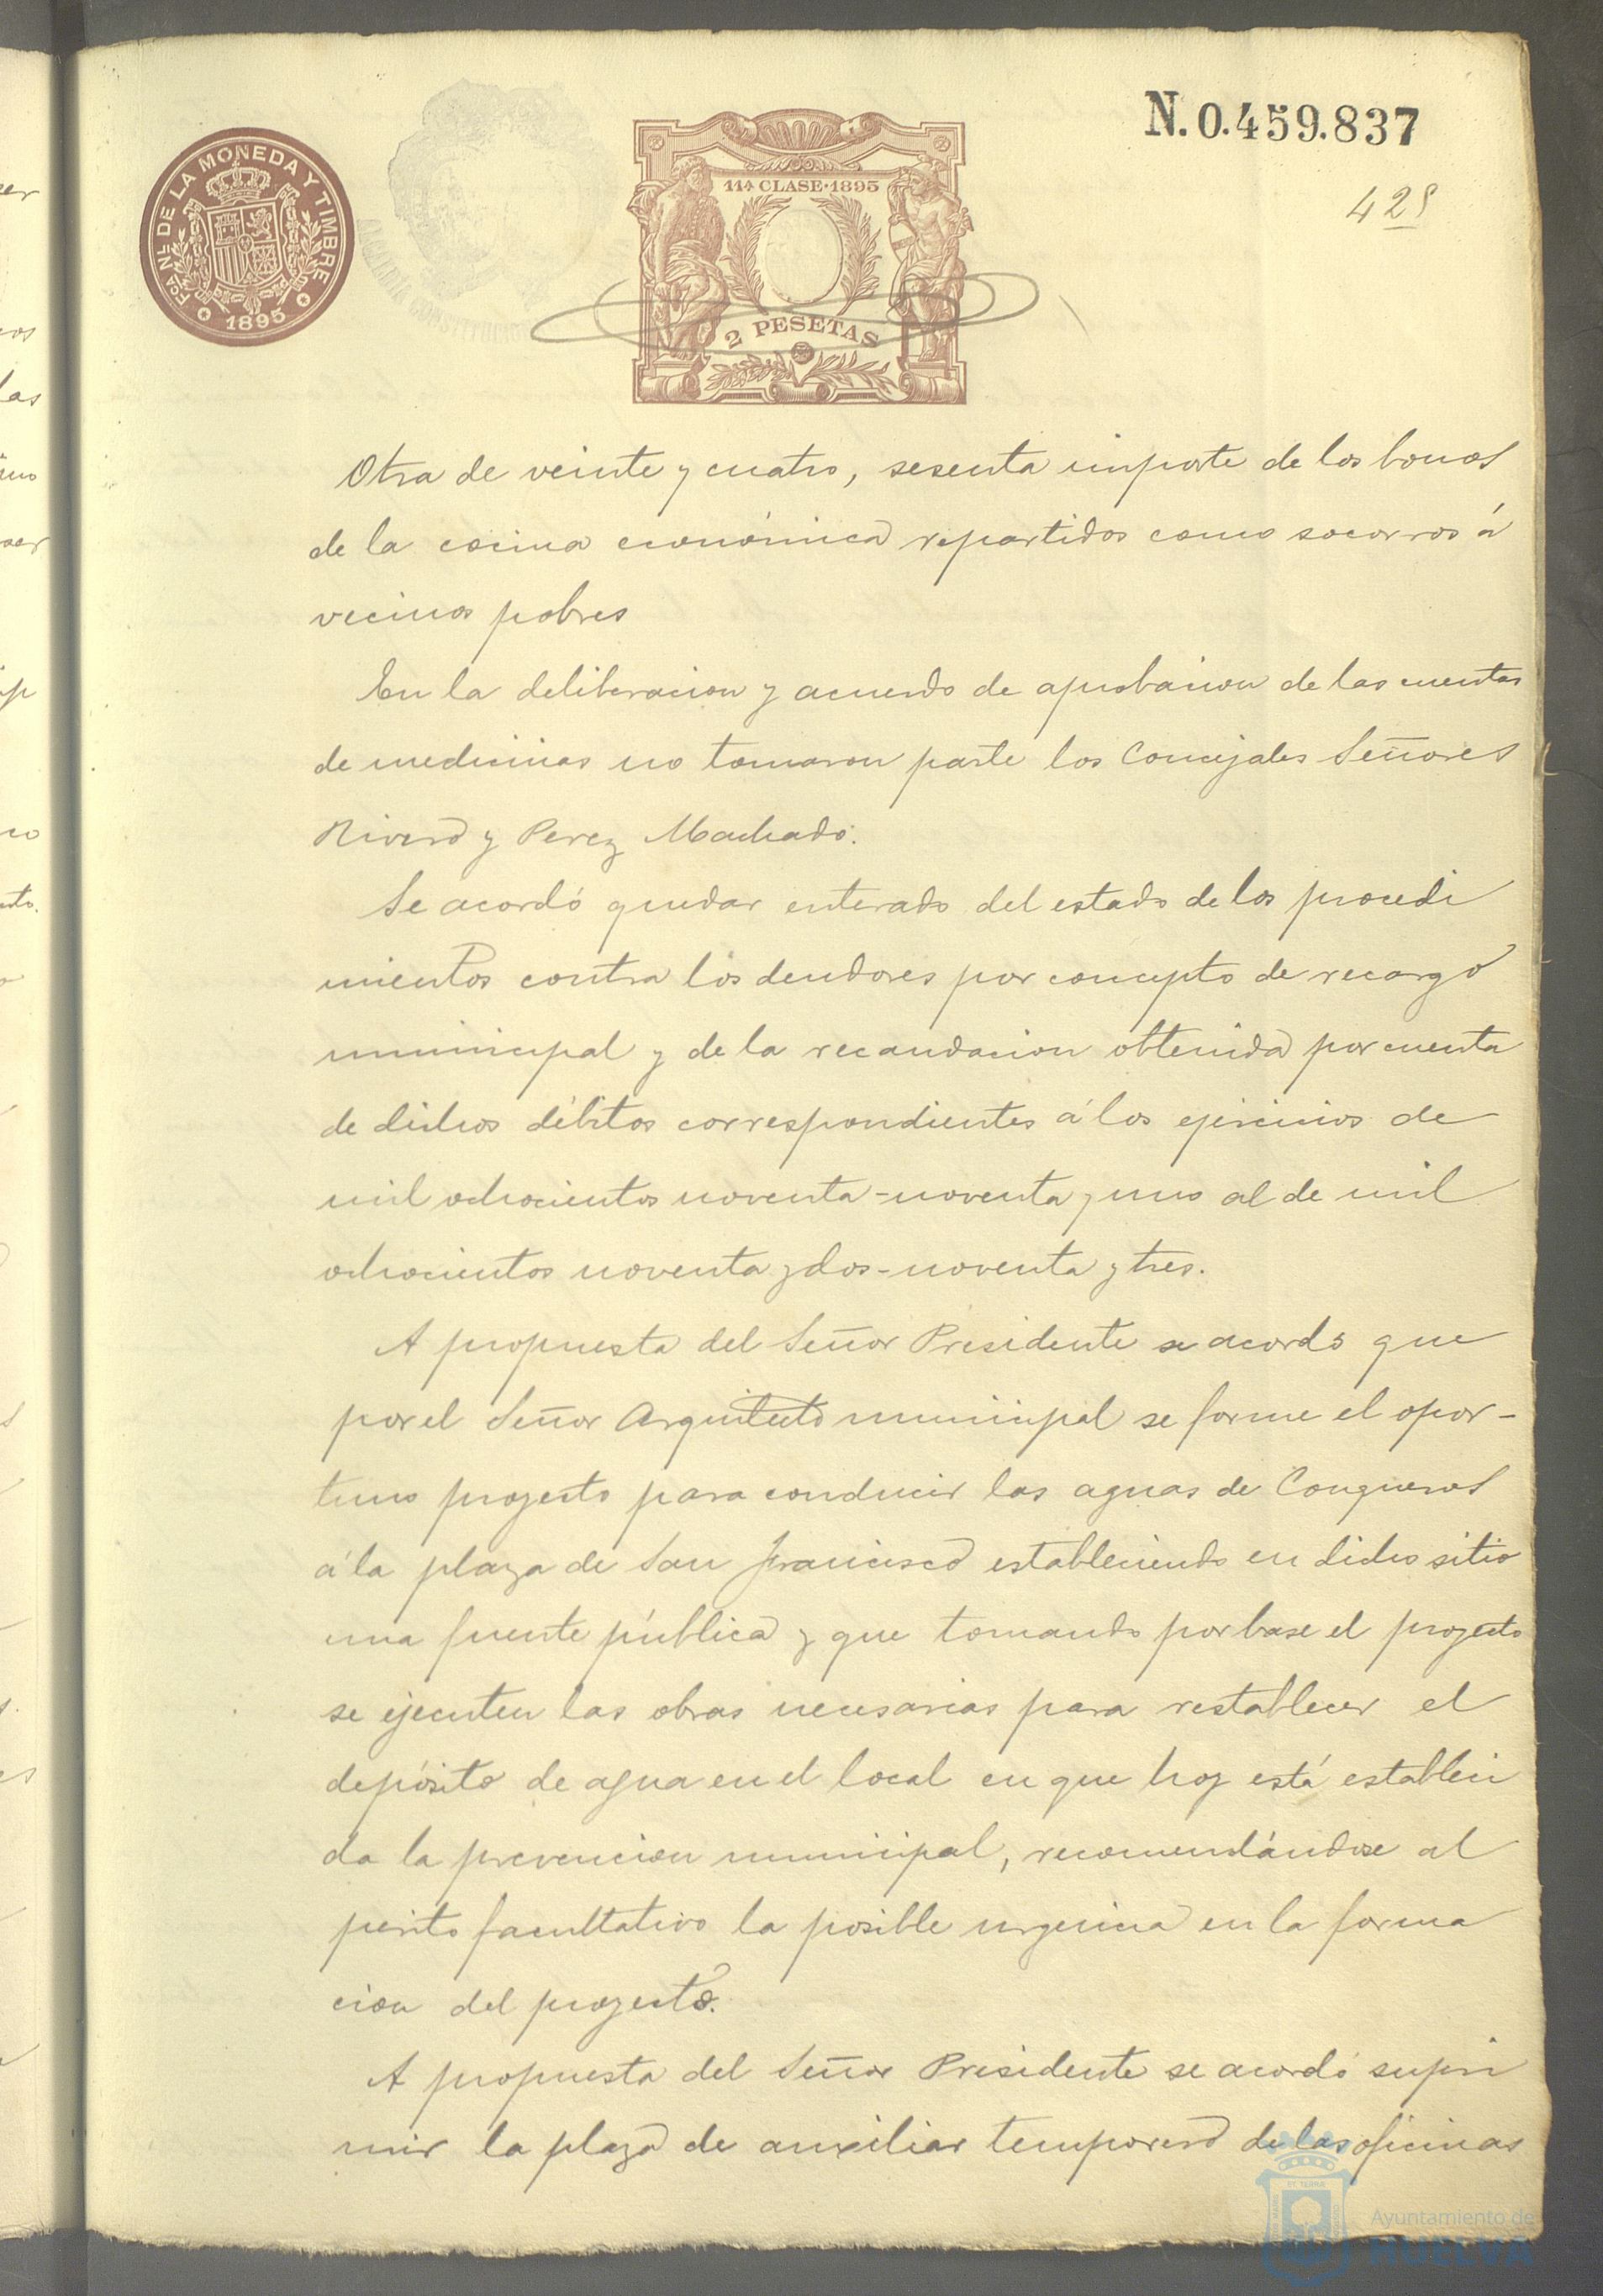 N. 0.459.837
FCA. NL. DE LA MONEDA Y TIMBRE
1895
11ª CLASE·1895
2 PESETAS
Otra de veinte y cuatro, sesenta importe de los bonos
de la cocina económica repartidos como socorros á
vecinos pobres
En la deliberacion y acuerdo de aprobacion de las cuentas
de medicinas no tomaron parte los Concejales Señores
Rivero y Perez Machado.
Se acordó quedar enterado del estado de los procedi
mientos contra los deudores por concepto de recargo
municipal y de la recaudacion obtenida por cuenta
de dichos débitos correspondientes á los ejercicios de
mil ochocientos noventa-noventa y uno al de mil
ochocientos noventa y dos-noventa y tres.
A propuesta del Señor Presidente se acordó que
por el Señor Arquitecto municipal se forme el opor-
tuno proyecto para conducir las aguas de Conqueros
á la plaza de San Francisco estableciendo en dicho sitio
una fuente pública y que tomando por base el proyecto
se ejecuten las obras necesarias para restablecer el
depósito de agua en el local en que hoy está estableci
da la prevencion municipal, recomendándose al
perito facultativo la posible urgencia en la forma
cion del proyecto.
A propuesta del Señor Presidente se acordó supri
mir la plaza de auxiliar temporero de las oficinas
Ayuntamiento de
HUELVA